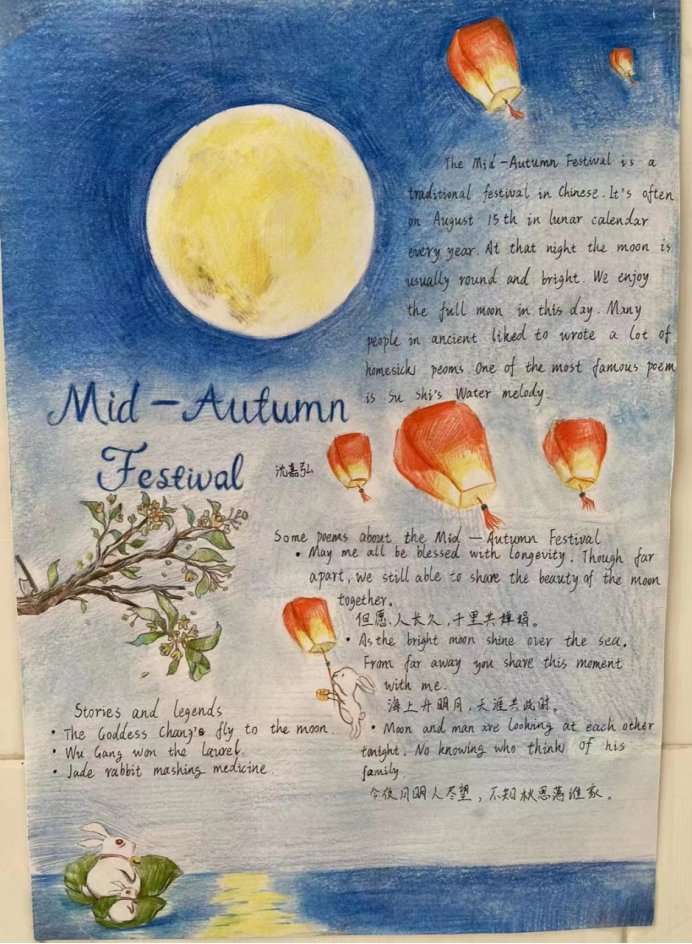 The Mid-Autumn Festival is a
traditional festival in Chinese. It's often
on August 15th in lunar calendar
every year. At that night the moon is
usually round and bright. We enjoy
the full moon in this day. Many
people in ancient liked to wrote a lot of
homesick peoms. One of the most famous poem
is Su Shi's Water melody.
Mid-Autumn
Festival
沈嘉弘
Some poems about the Mid-Autumn Festival
• May me all be blessed with longevity. Though far
apart, we still able to share the beauty of the moon
together.
但愿人长久,千里共婵娟。
• As the bright moon shine over the sea.
From far away you share this moment
with me.
海上升明月,天涯共此时。
• Moon and man are looking at each other
tonight. No knowing who think of his
family.
今夜月明人尽望,不知秋思落谁家。
Stories and legends
• The Goddess Chang'e fly to the moon.
• Wu Gang won the laurel.
• Jade rabbit mashing medicine.